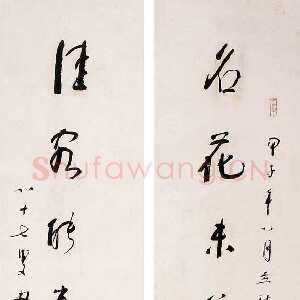 名花未
甲子年八月
佳客能
八十七叟
Shufawang.CN